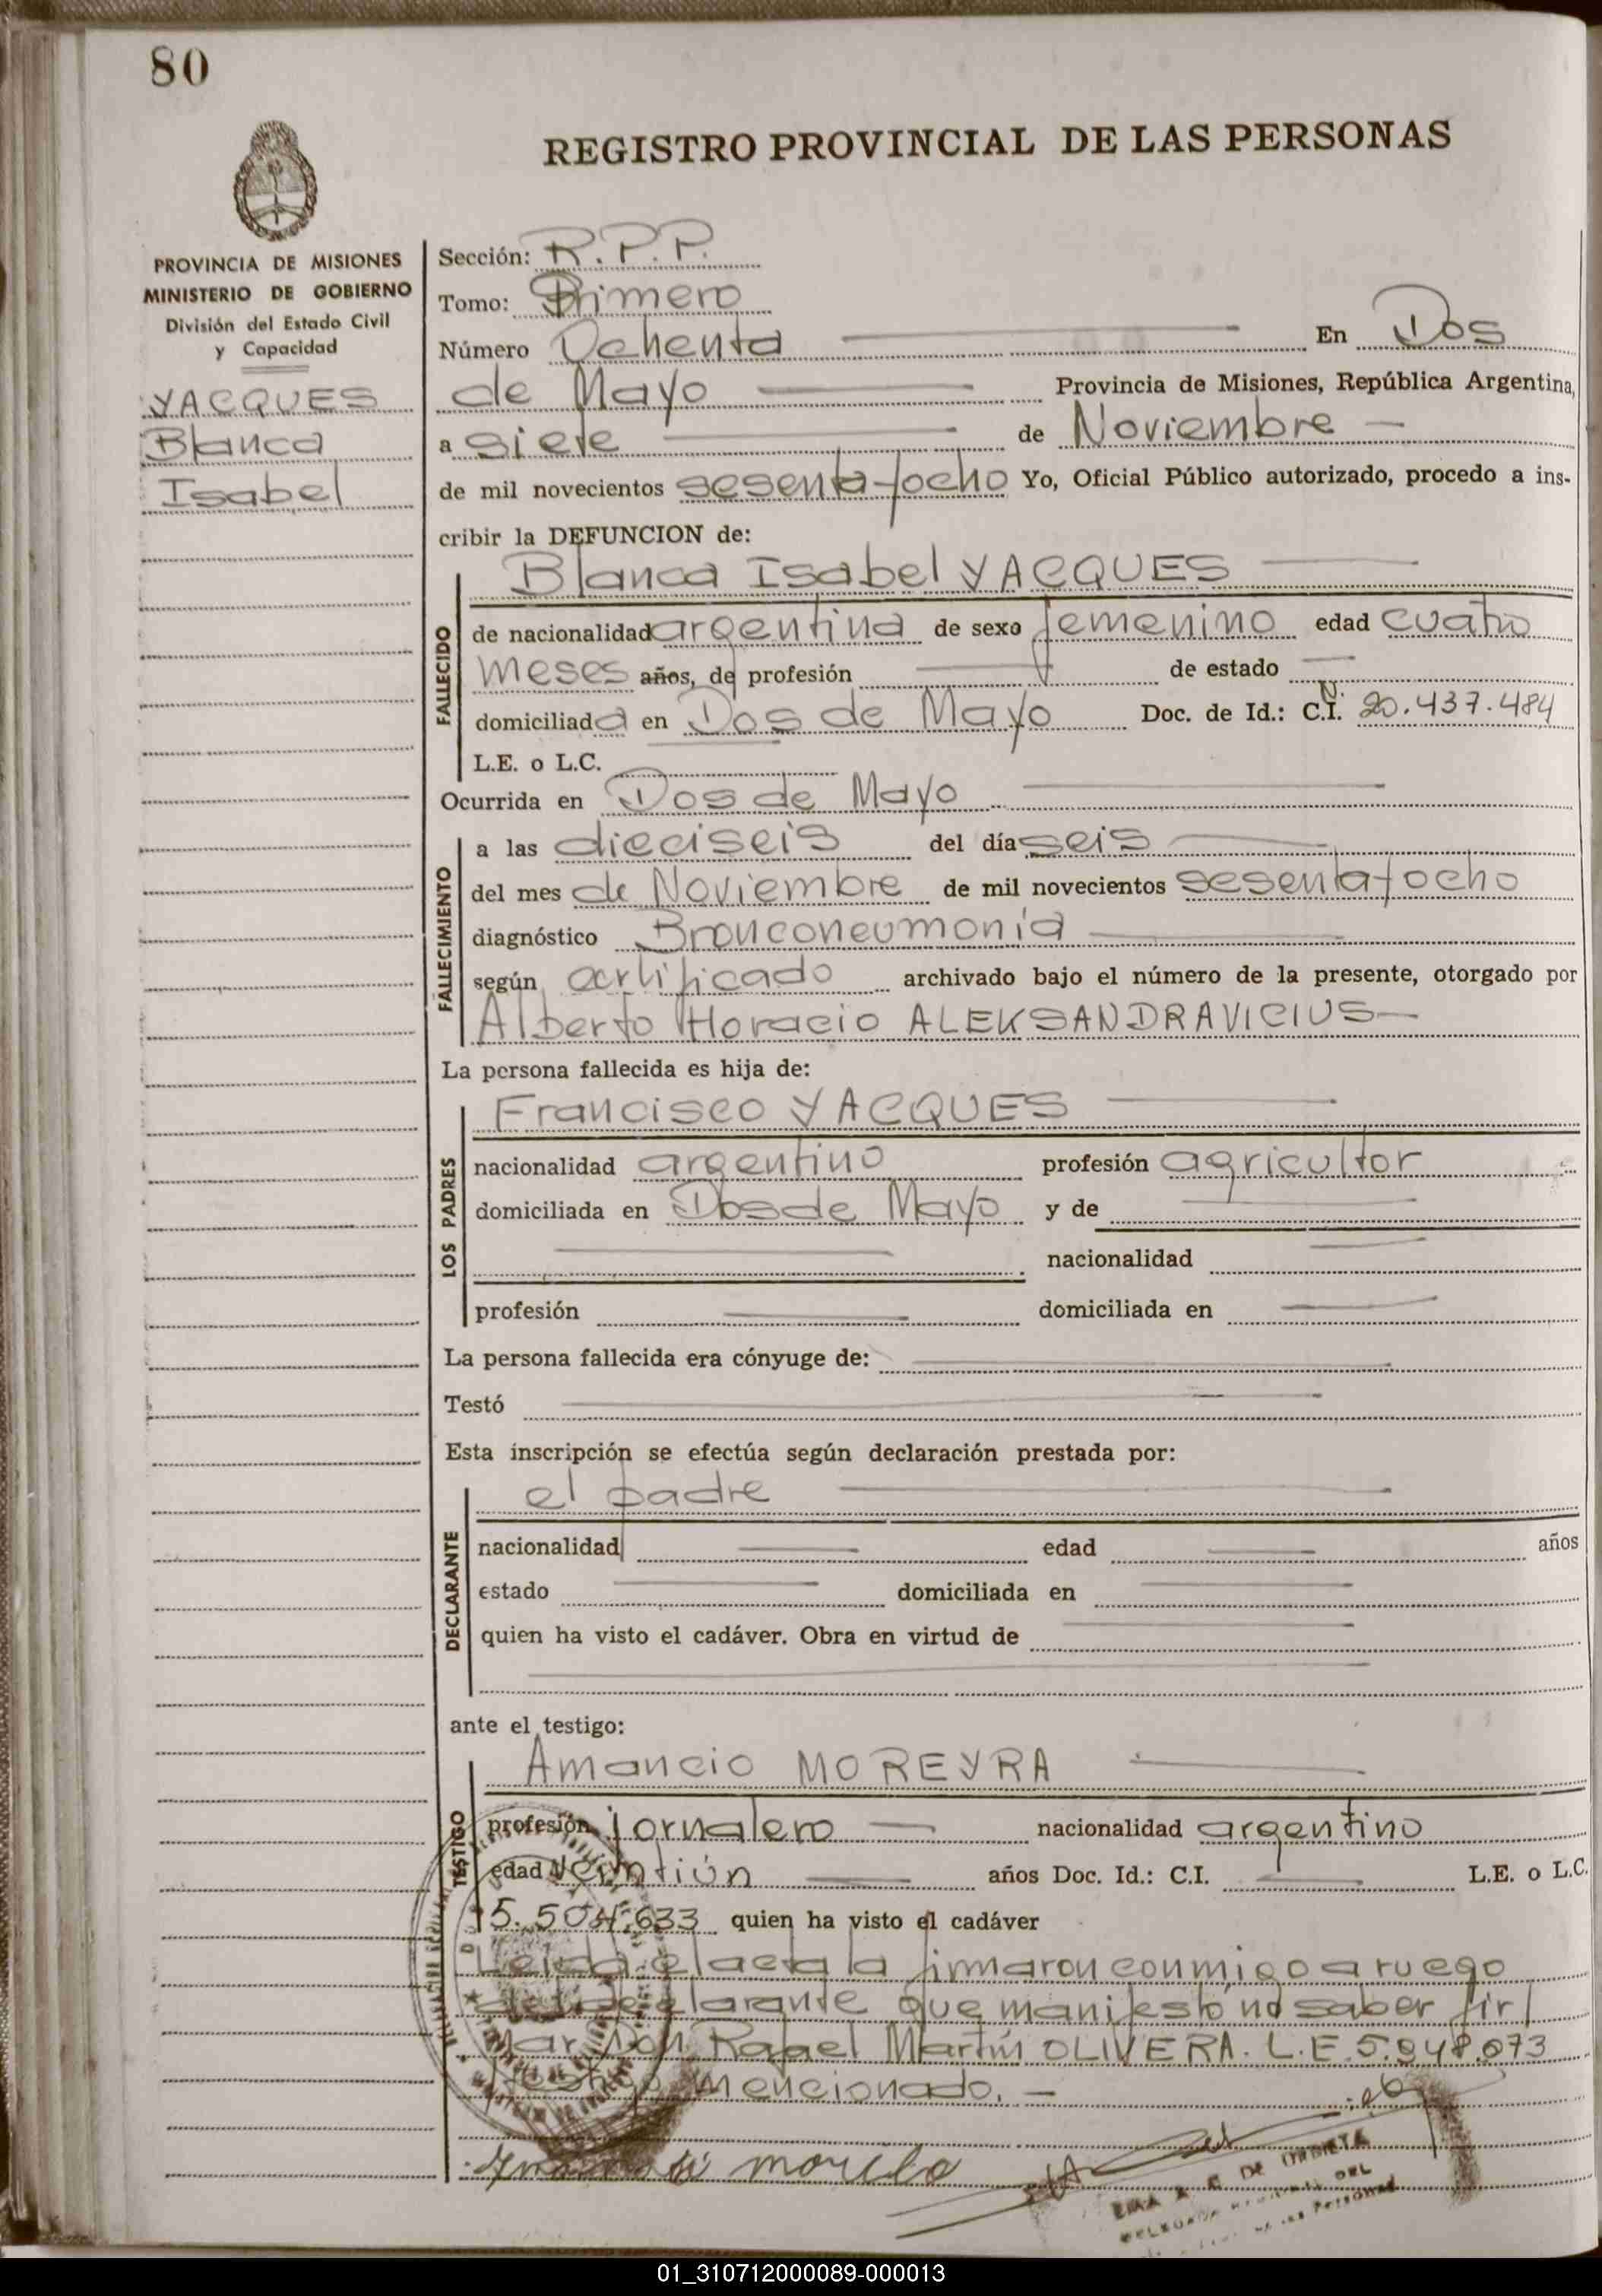 80
REGISTRO PROVINCIAL DE LAS PERSONAS
PROVINCIA DE MISIONES
MINISTERIO DE GOBIERNO
División del Estado Civil
y Capacidad
YACQUES
Blanca
Isabel
Sección: R.P.P.
Tomo: Primero
Número Ochenta En Dos
de Mayo Provincia de Misiones, República Argentina,
a siete de Noviembre
de mil novecientos sesenta y ocho Yo, Oficial Público autorizado, procedo a ins-
cribir la DEFUNCION de:
Blanca Isabel YACQUES
FALLECIDO
de nacionalidad argentina de sexo femenino edad cuatro
meses años, de profesión de estado
domiciliada en Dos de Mayo Doc. de Id.: C.I. 20.437.484
L.E. o L.C.
Ocurrida en Dos de Mayo
FALLECIMIENTO
a las dieciseis del día seis
del mes de Noviembre de mil novecientos sesenta y ocho
diagnóstico Bronconeumonía
según certificado archivado bajo el número de la presente, otorgado por
Alberto Horacio ALEKSANDRAVICIUS
La persona fallecida es hija de:
Francisco YACQUES
LOS PADRES
nacionalidad argentino profesión agricultor
domiciliada en Dos de Mayo y de
nacionalidad
profesión domiciliada en
La persona fallecida era cónyuge de:
Testó
Esta inscripción se efectúa según declaración prestada por:
el padre
DECLARANTE
nacionalidad edad años
estado domiciliada en
quien ha visto el cadáver. Obra en virtud de
ante el testigo:
Amancio MOREYRA
TESTIGO
profesión jornalero nacionalidad argentino
edad veintiún años Doc. Id.: C.I. L.E. o L.C.
5.504.633 quien ha visto el cadáver
Leida el acta la firmaron conmigo a ruego
del declarante que manifestó no saber fir
mar Don Rafael Martín OLIVERA. L.E. 5.948.073
testigo mencionado.
DE URRIETA
DEL
de las Personas
01_310712000089-000013